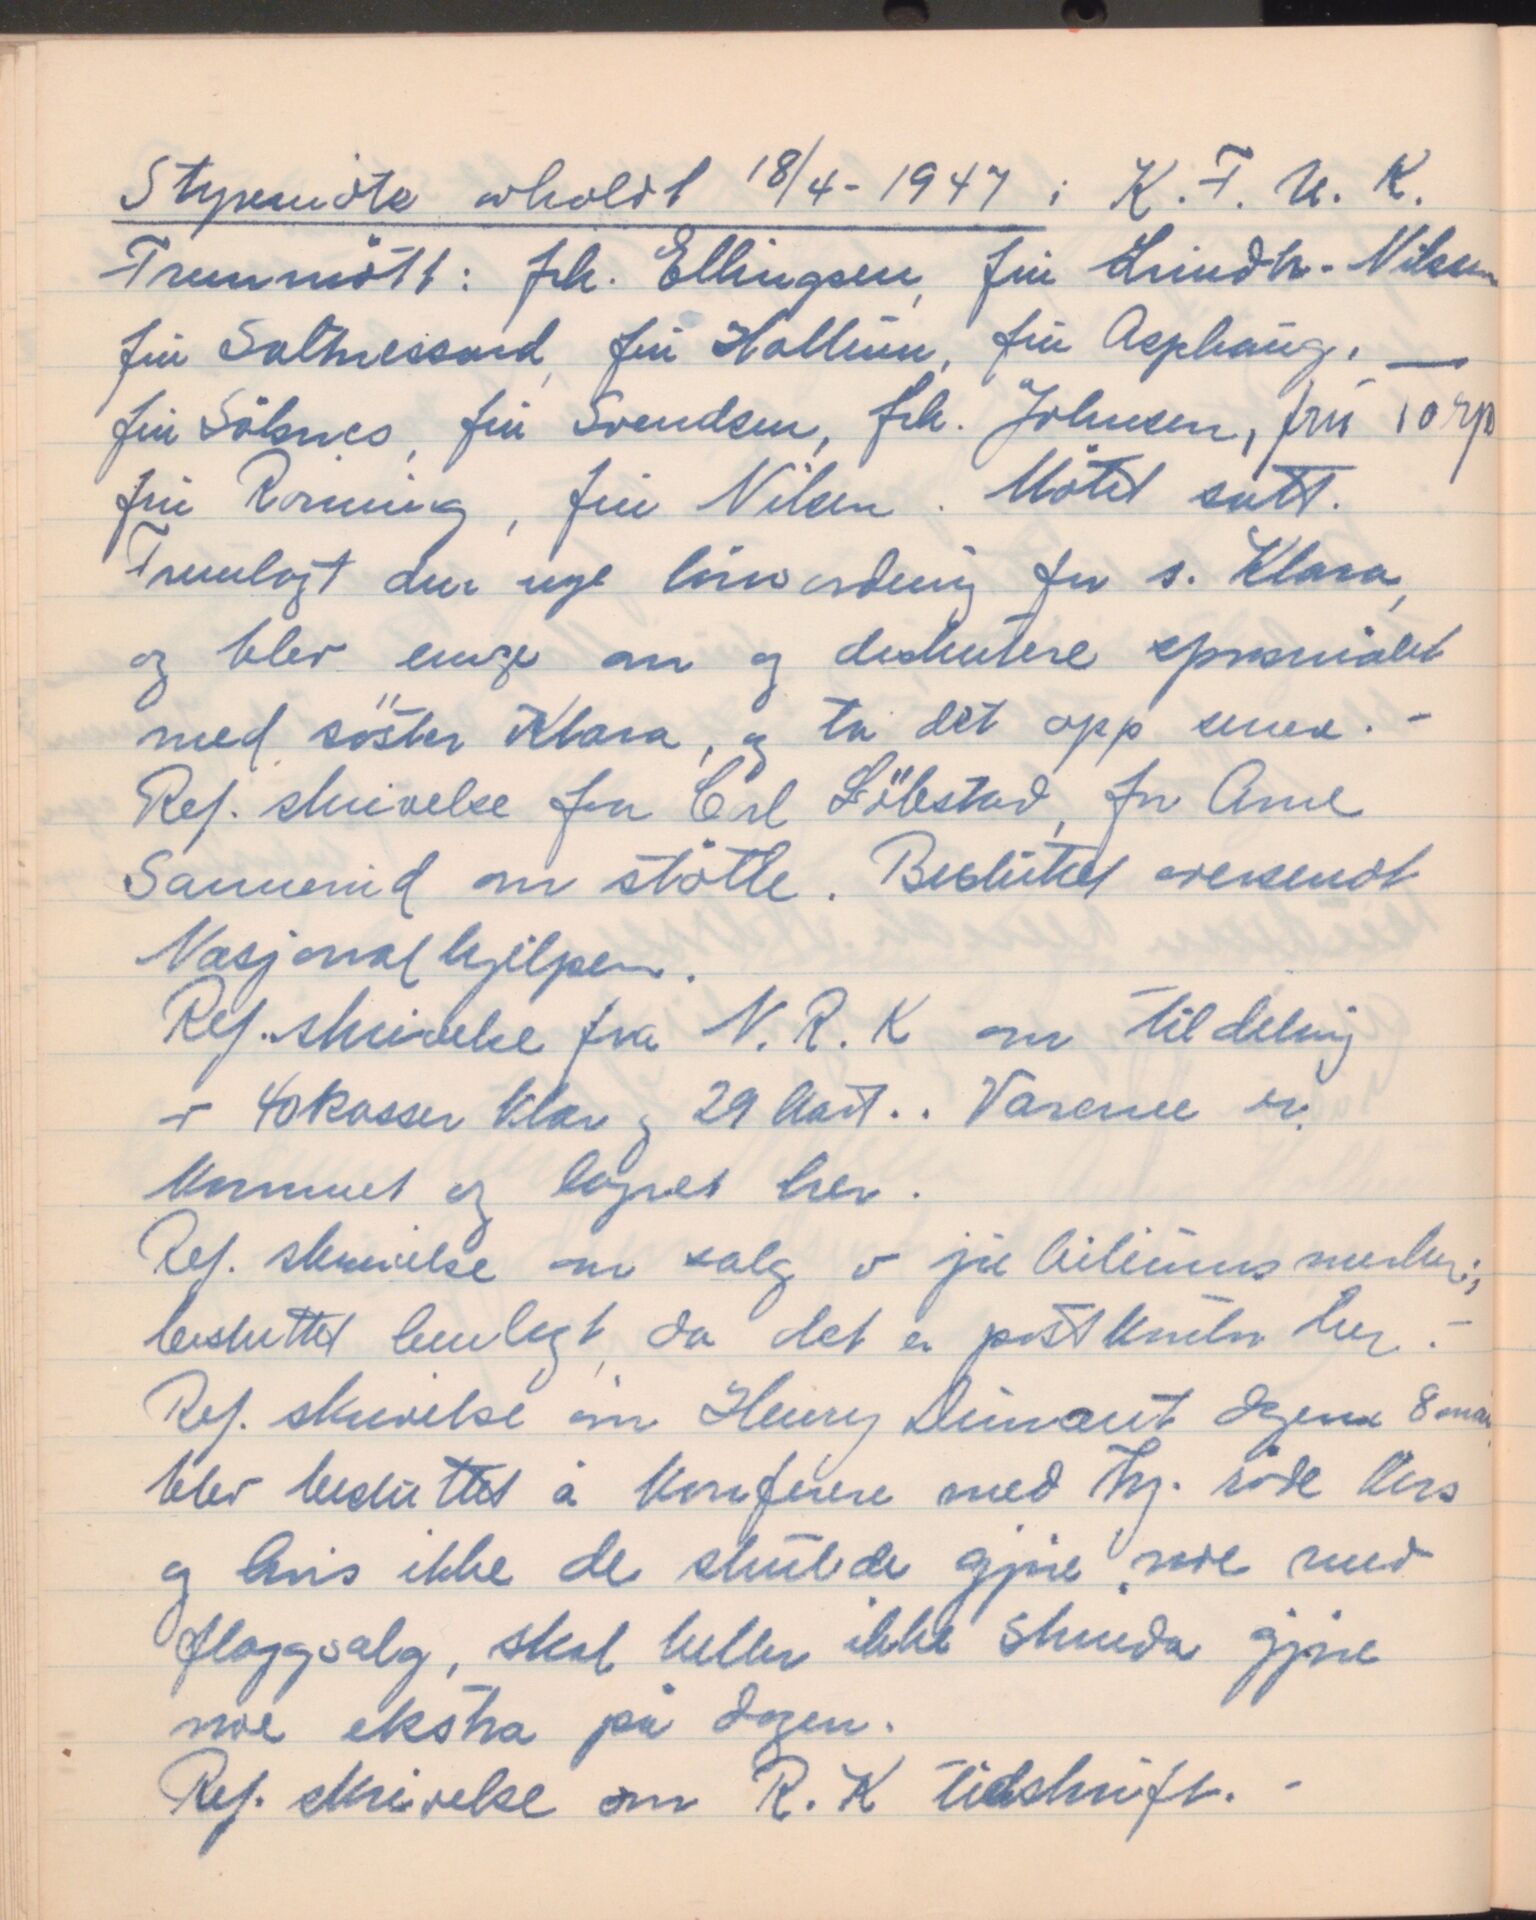 Styremöte avholdt 18/4-1947 i K.F.U.K.
Fremmött: frk. Ellingsen, fru Lindh-Nilsen
fru Saltnessand, fru Hallum, fru Asphaug,
fru Sölsnes, fru Svendsen, frk. Johnsen, fru Torp
fru Rönning, fru Nilsen. Mötet satt.
Fremlagt den nye lönsordning for s. Klara,
og blev enige om og diskutere spörsmålet
med söster Klara, og ta det opp senere. -
Ref. skrivelse fra Carl Löbstad, for Arne
Sannerud om stötte. Besluttet oversendt
Nasjonalhjelpen.
Ref. skrivelse fra N.R.K om tildeling
av 40 kasser klær og 29 kart.. Varene er
kommet og lagret her.
Ref. skrivelse om salg av jubileumsmerker;
besluttet henlagt, da det er postkontor her. -
Ref. skrivelse om Henry Dunant dagen 8 mai,
blev besluttet å konferere med Tr.hj. röde kors
og hvis ikke de skulde gjöre noe med
flaggsalg, skal heller ikke Strinda gjöre
noe ekstra på dagen.
Ref. skrivelse om R.K tidskrift. -